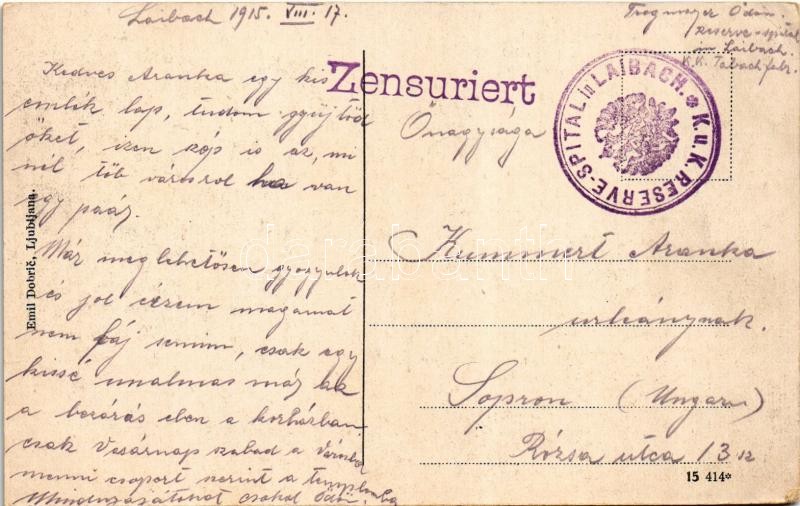 Laibach 1915. VIII. 17.
Kedves Aranka egy kis
emlék lap, tudom gyüjtöd
őket, izen szép is az, mi
nél töb városrol ha van
egy paár.
Már meglehetősen gyogyulok
és jol érzem magamat
nem fáj semim, csak egy
kissé unalmas már az
a bezárás eben a korházban
csak Vasárnap szabad a Városba
menni csoport szerint a templomba
Mindnyájatokat csokol Ödön.
Emil Dobrič, Ljubljana.
Zensuriert
Tragmayer Ödön.
Reserve-spital
in Laibach.
K.K. Tabachfabr.
K.u.K. RESERVE-SPITAL in LAIBACH.
Őnagysága
Kummert Aranka
urleánynak.
Sopron (Ungarn)
Rózsa utca 13 sz
15 414*
darabanth